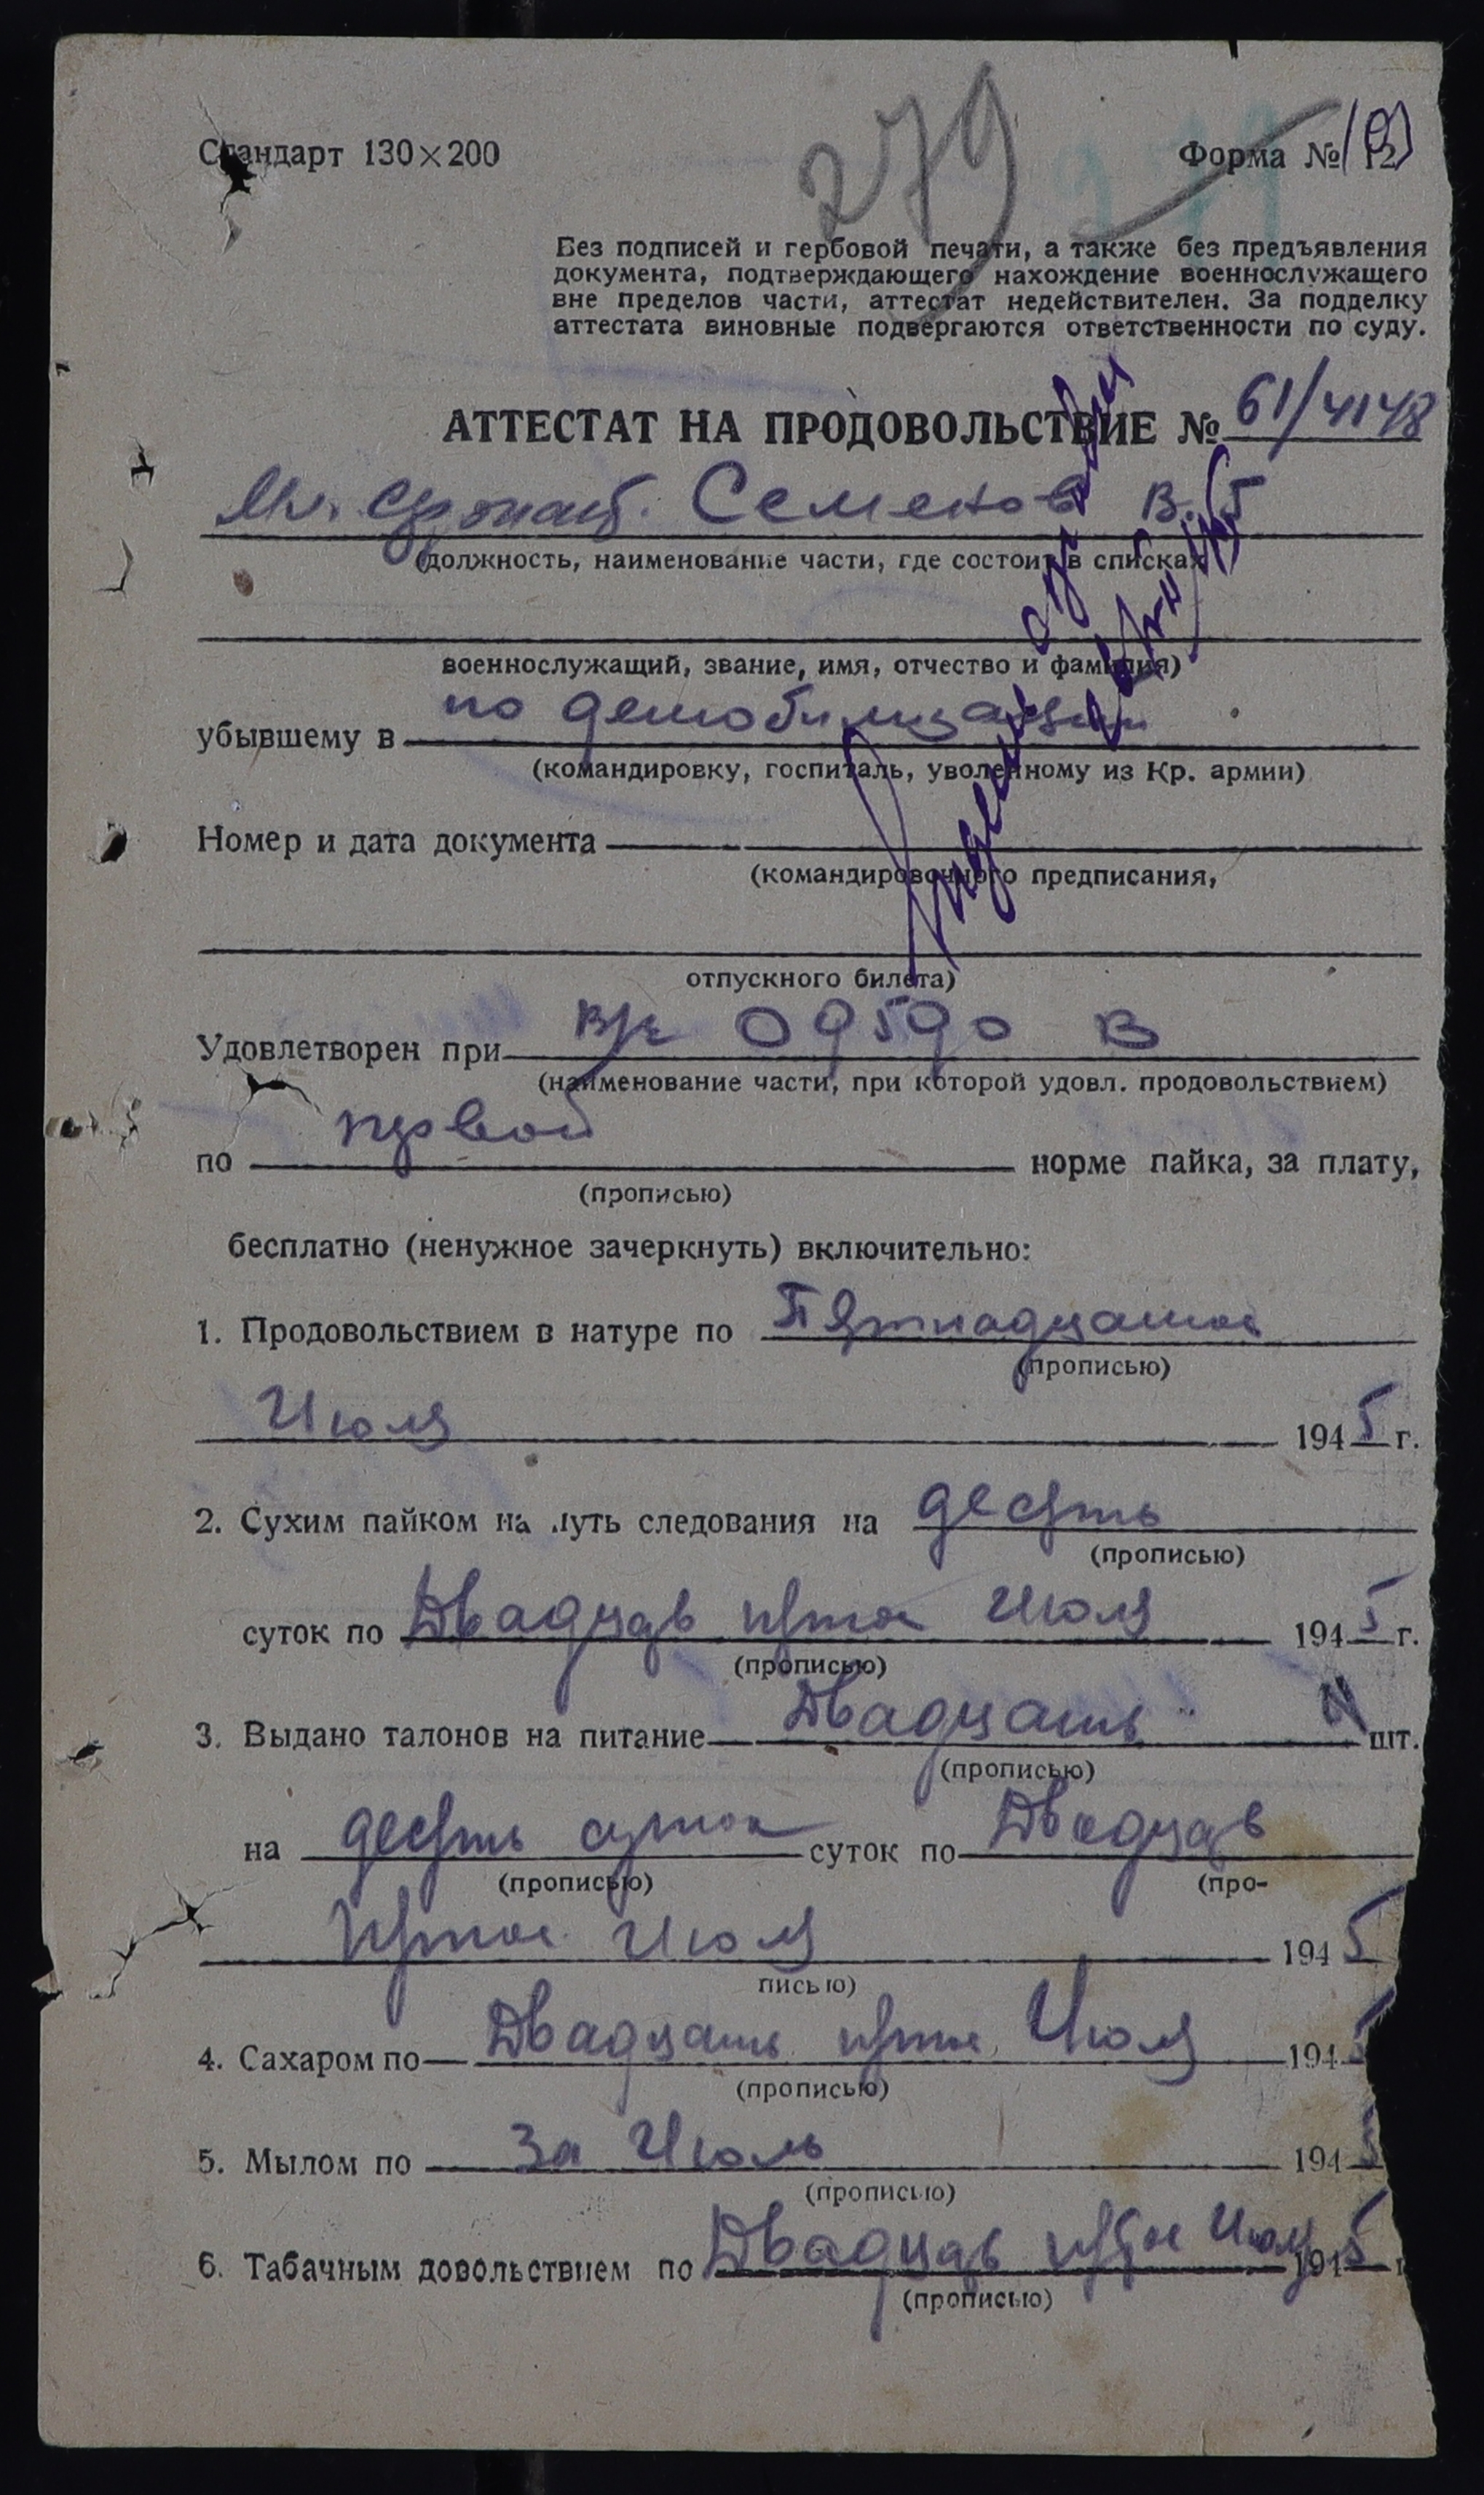 279
Стандарт 130×200
Форма № 12
Без подписей и гербовой печати, а также без предъявления
документа, подтверждающего нахождение военнослужащего
вне пределов части, аттестат недействителен. За подделку
аттестата виновные подвергаются ответственности по суду.
АТТЕСТАТ НА ПРОДОВОЛЬСТВИЕ № 61/4148
Мл. Семенов В.
(должность, наименование части, где состоит в списках
военнослужащий, звание, имя, отчество и фамилия)
убывшему в по демобилизации
(командировку, госпиталь, уволенному из Кр. армии)
Номер и дата документа
(командировочного предписания,
отпускного билета)
Удовлетворен при в/ч 09590 В
(наименование части, при которой удовл. продовольствием)
по первой норме пайка, за плату,
(прописью)
бесплатно (ненужное зачеркнуть) включительно:
1. Продовольствием в натуре по Пятнадцатое
(прописью)
Июля 1945 г.
2. Сухим пайком на путь следования на десять
(прописью)
суток по Двадцать пятое Июля 1945 г.
(прописью)
3. Выдано талонов на питание Двадцать шт.
(прописью)
на десять суток суток по Двадцать
(прописью) (про-
пятое Июля 1945
писью)
4. Сахаром по Двадцать пятое Июля 1945
(прописью)
5. Мылом по За Июль 1945
(прописью)
6. Табачным довольствием по Двадцать пятое Июля 1945 г
(прописью)